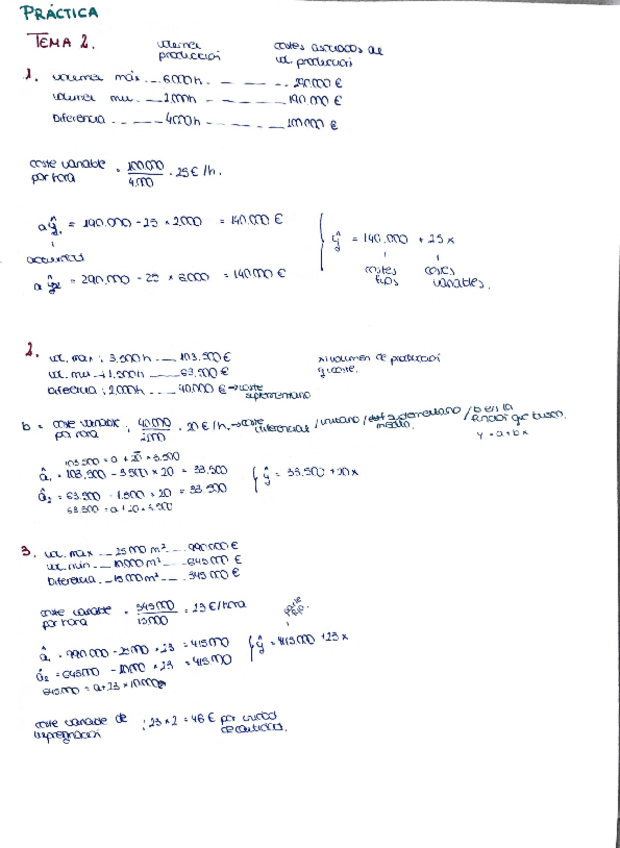 PRÁCTICA
TEMA 2.
volumen producción
costes asociados al vol. producción
1. volumen máx ... 6000h. - - - .. 290.000 €
volumen mín. ... 2.000h - - - - - 190.000 €
Diferencia .. - - - 4000h - - - - - 100.000 €
coste variable por hora = 100.000 / 4.000 = 25€/h.
a ŷ1 = 190.000 - 25 × 2.000 = 140.000 €
a ŷ2 = 290.000 - 25 × 6000 = 140.000 €
ŷ = 140.000 + 25x
costes fijos
costes variables.
2. vol. max : 3.500h ... 103.500€
vol. min : 1.500h ... 63.500€
Diferencia : 2.000h ... 40.000 € → coste suplementario
volumen de producción y coste.
b = coste variable por hora : 40.000 / 2.000 = 20 €/h. → coste diferencial / unitario / / b en la función que busco.
y = a + bx
103.500 = a + 20 × 3.500
â1 = 103.500 - 3.500 × 20 = 33.500
â2 = 63.500 - 1.500 × 20 = 33.500
63.500 = a + 20 × 1.500
ŷ = 33.500 + 20x
3. vol. max ... 25000 m² ... 990.000 €
vol. min ... 10.000 m² ... 645.000 €
Diferencia ... 15000 m² ... 345.000 €
coste variable por hora = 345.000 / 15.000 = 23 €/hora
parte fija.
â1 = 990.000 - 25000 × 23 = 415000
â2 = 645000 - 10.000 × 23 = 415000
645.000 = a + 23 × 10.000
ŷ = 415.000 + 23x
coste variable de impregnación : 23 × 2 = 46 € por unidad